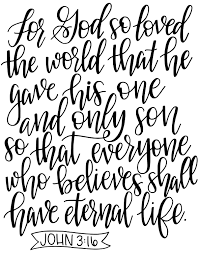 For God so loved
the world that he
gave his one
and only son
so that everyone
who believes shall
have eternal life.
JOHN 3:16